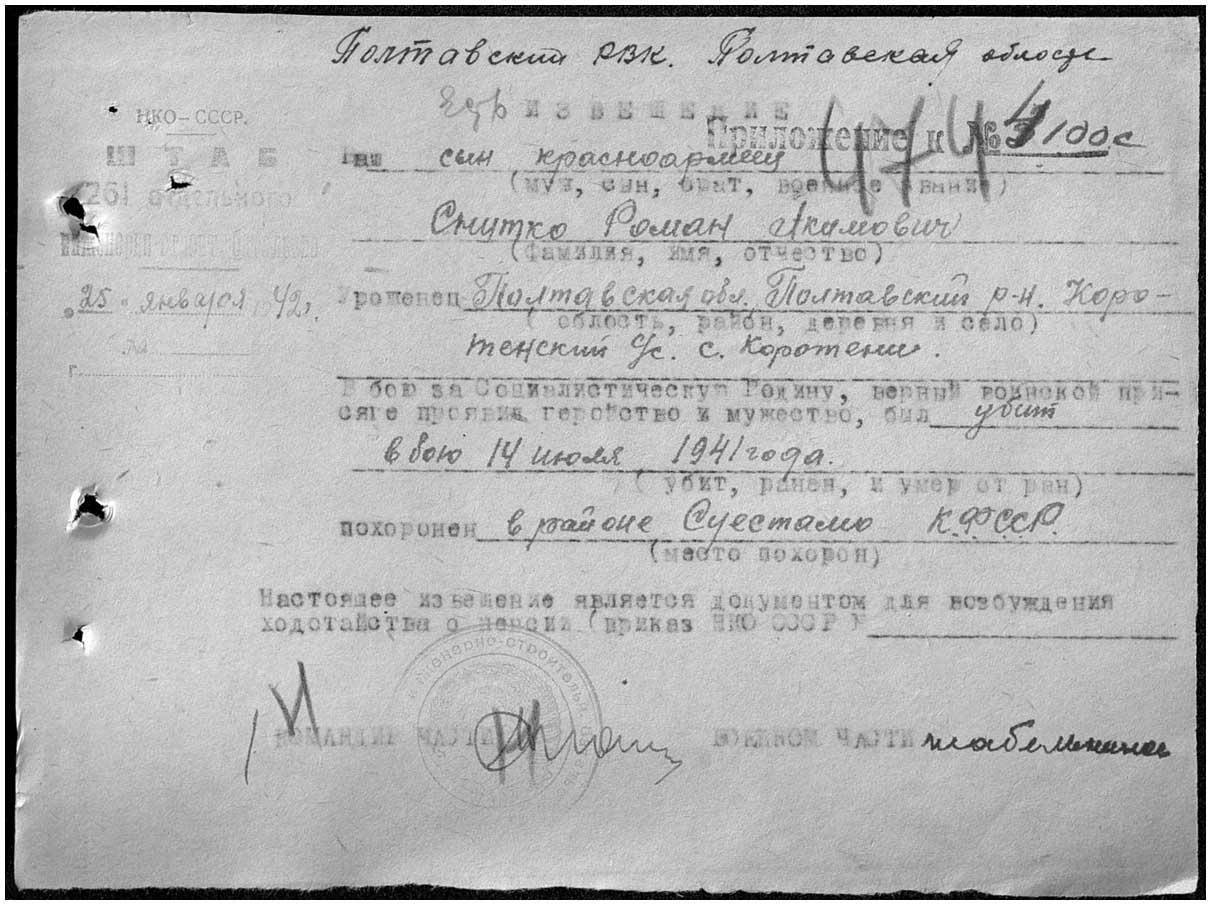 Полтавский РВК. Полтавская область
ИЗВЕЩЕНИЕ
Приложение к № 3100с
474
НКО–СССР.
ШТАБ
261 отдельного
25 января 1942г.
№
Ваш сын красноармеец
(муж, сын, брат, военное звание)
Снитко Роман Акимович
(фамилия, имя, отчество)
Уроженец Полтавская обл. Полтавский р-н. Коро-
(область, район, деревня и село)
тенский с/с. с. Коротени.
В бою за Социалистическую Родину, верный воинской при-
сяге проявив геройство и мужество, был убит
в бою 14 июля 1941 года.
(убит, ранен, и умер от ран)
похоронен в районе Суестамо К.Ф.ССР.
(место похорон)
Настоящее извещение является документом для возбуждения
ходотайства о пенсии (приказ НКО СССР №
инженерно-строительн
КОМАНДИР ЧАСТИ
ВОЕНКОМ ЧАСТИ